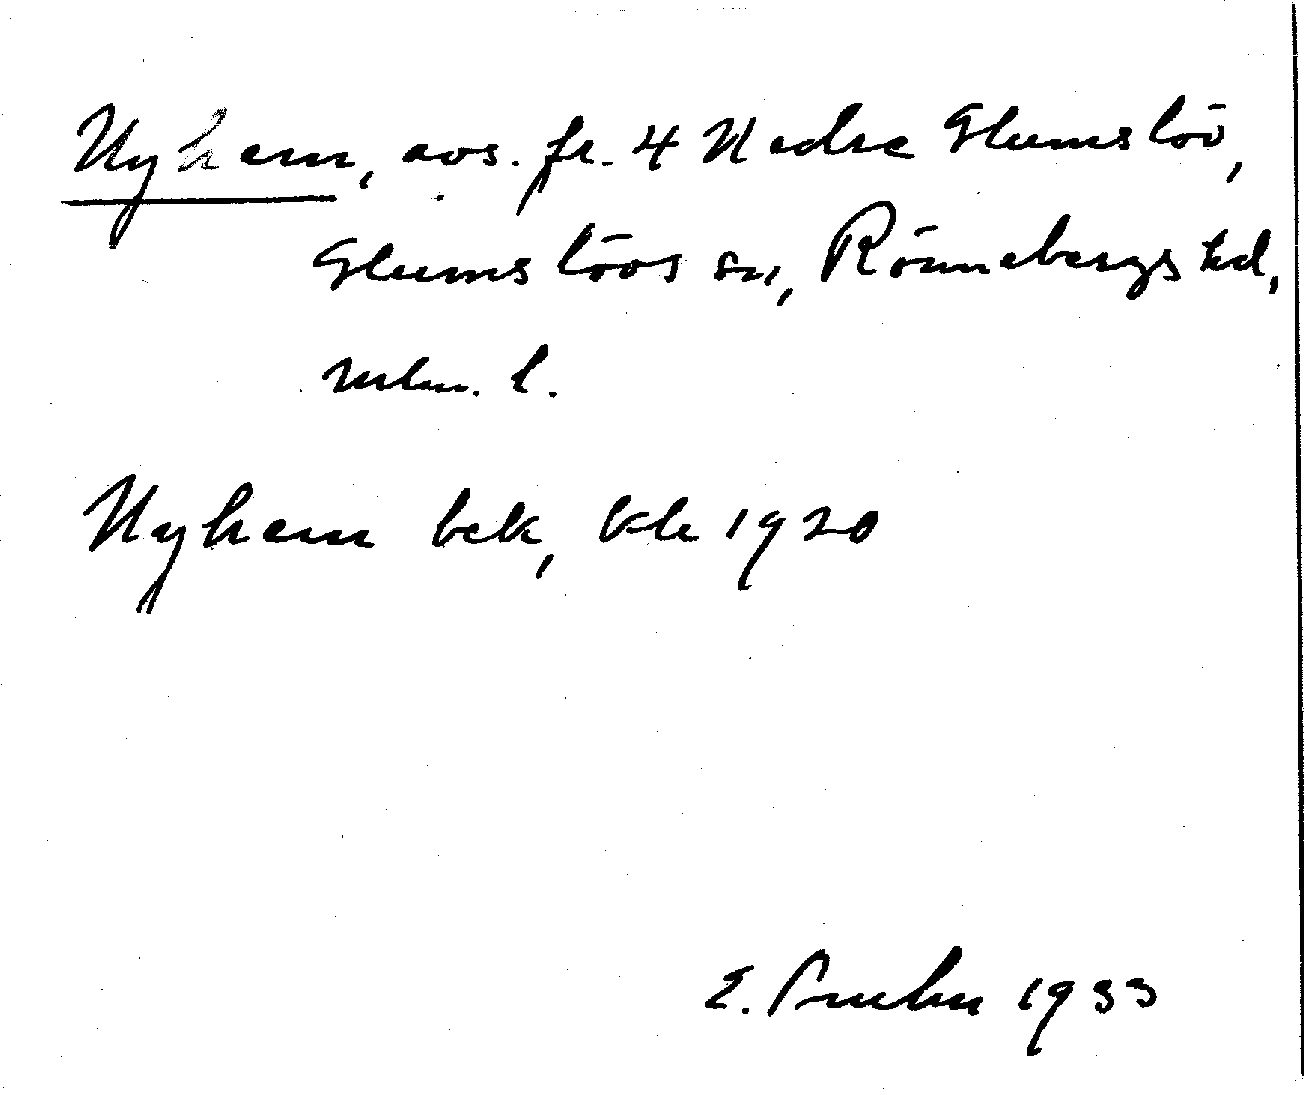 Nyhem, avs. fr. 4 Nedre Glumslöv,
Glumslövs sn, Rönnebergs hd,
Mlm. l.
Nyhem bek, Kle 1920
E. 1933